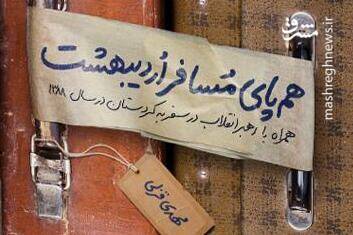 هم پای مسافر اُردیبهشت
همراه با رهبر انقلاب در سفر به کردستان در سال ۱۳۸۸
مهدی قزلی
مشرق
mashreghnews.ir